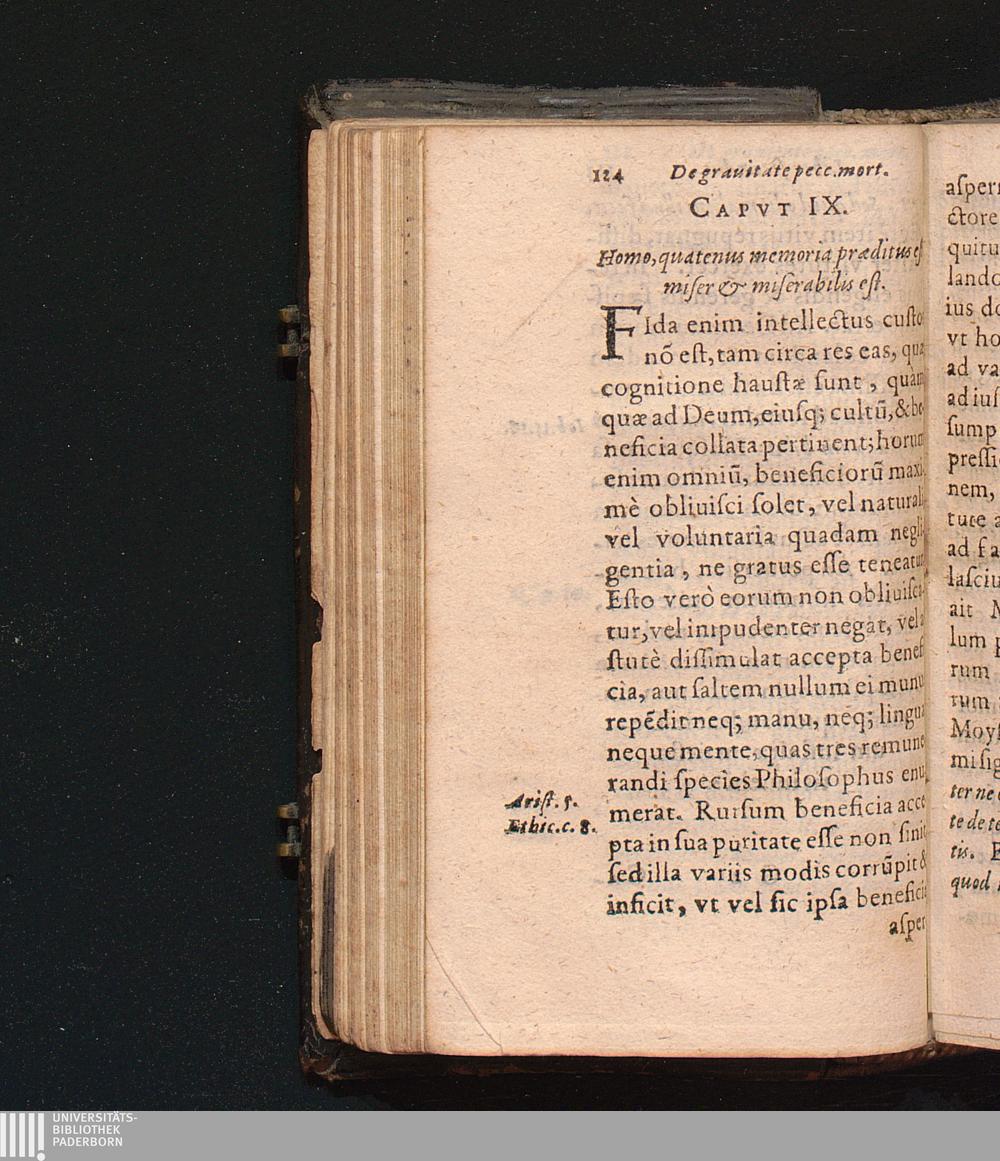 124 De grauitate pecc. mort.
CAPVT IX.
Homo, quatenus memoria præditus est
miser & miserabilis est.
FIda enim intellectus custo
nõ est, tam circa res eas, quæ
cognitione haustæ sunt, quàm
quæ ad Deum, eiusq; cultũ, & be
neficia collata pertinent; horum
enim omniũ, beneficiorũ maxi
mè obliuisci solet, vel naturali
vel voluntaria quadam negli
gentia, ne gratus esse teneatur
Esto verò eorum non obliuisca
tur, vel impudenter negat, vel a
stutè dissimulat accepta benefi
cia, aut saltem nullum ei munu
repẽdit neq; manu, neq; lingua
neque mente, quas tres remune
randi species Philosophus enu
merat. Rursum beneficia acce
pta in sua puritate esse non sinit
sed illa variis modis corrũpit &
inficit, vt vel sic ipsa beneficia
asper
Arist. 5.
Ethic. c. 8.
asper
ctore
quitu
lando
ius do
vt ho
ad va
ad ius
sump
pressi
nem,
ture a
ad fa
lasciu
ait M
lum p
rum
rum
Moys
mi sig
ter ne
te de te
tis. E
quod
UNIVERSITÄTS-
BIBLIOTHEK
PADERBORN